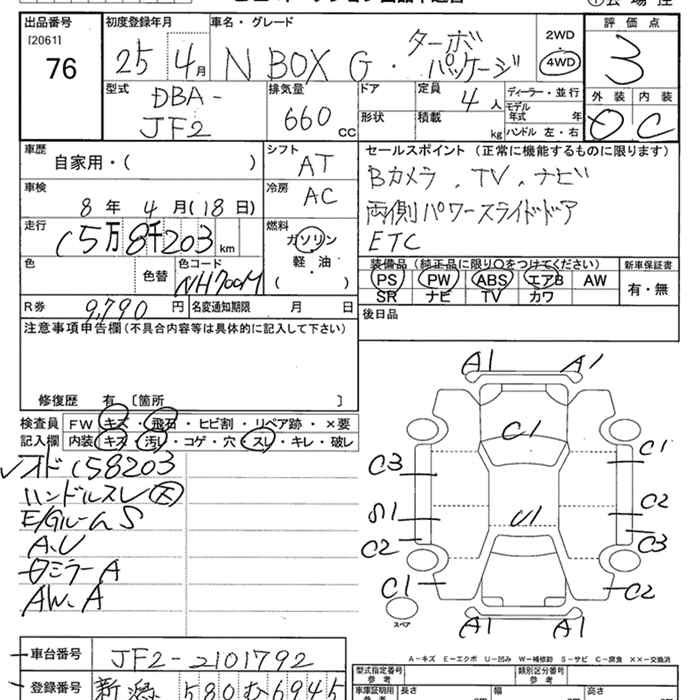 出品番号 初度登録年月 車名・グレード 2WD 評価点
[2061] 76 25 4月 N BOX G・ターボパッケージ 4WD 3
型式 DBA-JF2 排気量 660 CC ドア 定員 4人 ディーラー・並行 外装 内装
形状 積載 kg モデル年式 年 ハンドル 左・右 C
車歴 自家用・( ) シフト AT セールスポイント (正常に機能するものに限ります)
車検 8年 4月(18日) 冷房 AC Bカメラ、TV、ナビ
両側パワースライドドア
走行 15万8千203 km 燃料 ガソリン・軽油・( ) ETC
色 色替 色コード NH700M 装備品 (純正品に限り○をつけてください) 新車保証書
PS PW ABS エアB AW 有・無
SR ナビ TV カワ
R券 9,790 円 名変通知期限 月 日 後日品
注意事項申告欄 (不具合内容等は具体的に記入して下さい)
修復歴 有 〔箇所 〕
検査員 FW キズ・飛石・ヒビ割・リペア跡・×要
記入欄 内装 キズ・汚レ・コゲ・穴・スレ・キレ・破レ
オド158203
ハンドルスレ(大)
E/GルームS
A.U
ミラーA
AW.A
A1 A1
C1
C3 C1
S1 C2
U1
C2 C3
C1 C2
スペア
A1 A1
A-キズ E-エクボ U-凹み W-補修跡 S-サビ C-腐食 ××-交換済
車台番号 JF2-2101792 型式指定番号 参考 類別区分番号 参考
登録番号 新潟 580 む 6945 車庫証明用 長さ 幅 高さ